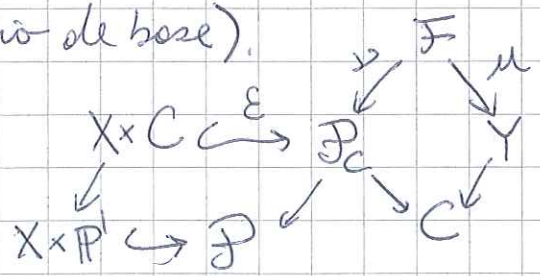 de base).
F
ν μ
X×C ε P_C Y
X×P¹ P C